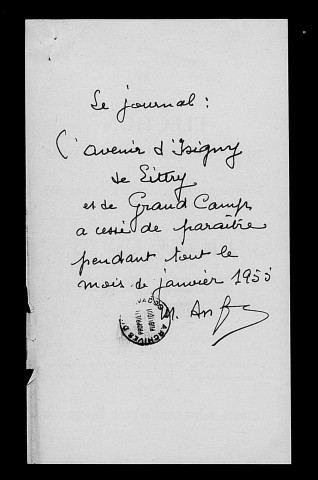 Le journal :
L'avenir d'Isigny
de Littry
et de Grand Camp
a cessé de paraître
pendant tout le
mois de janvier 1955
M.
ARCHIVES D
PROPRIÉTÉ
PUBLIQUE